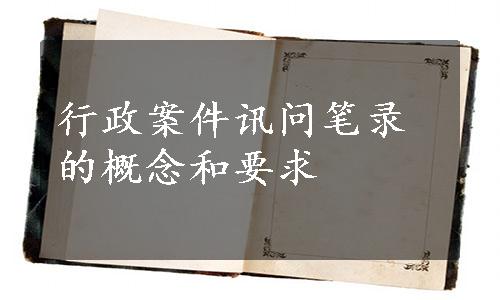 行政案件讯问笔录
的概念和要求